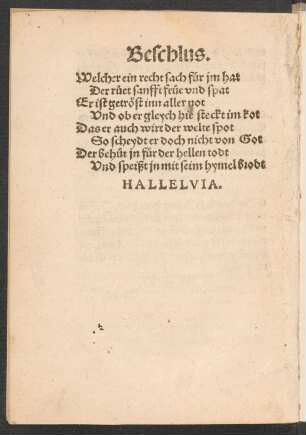 Beschlus.
Welcher ein recht sach für jm hat
Der rüet sanfft früe vnd spat
Er ist getröst inn aller not
Vnd ob er gleych hie steckt im kot
Das er auch wirt der welte spot
So scheydt er doch nicht von Got
Der behüt jn für der hellen todt
Vnd speißt jn mit seim hymel brodt
HALLELVIA.